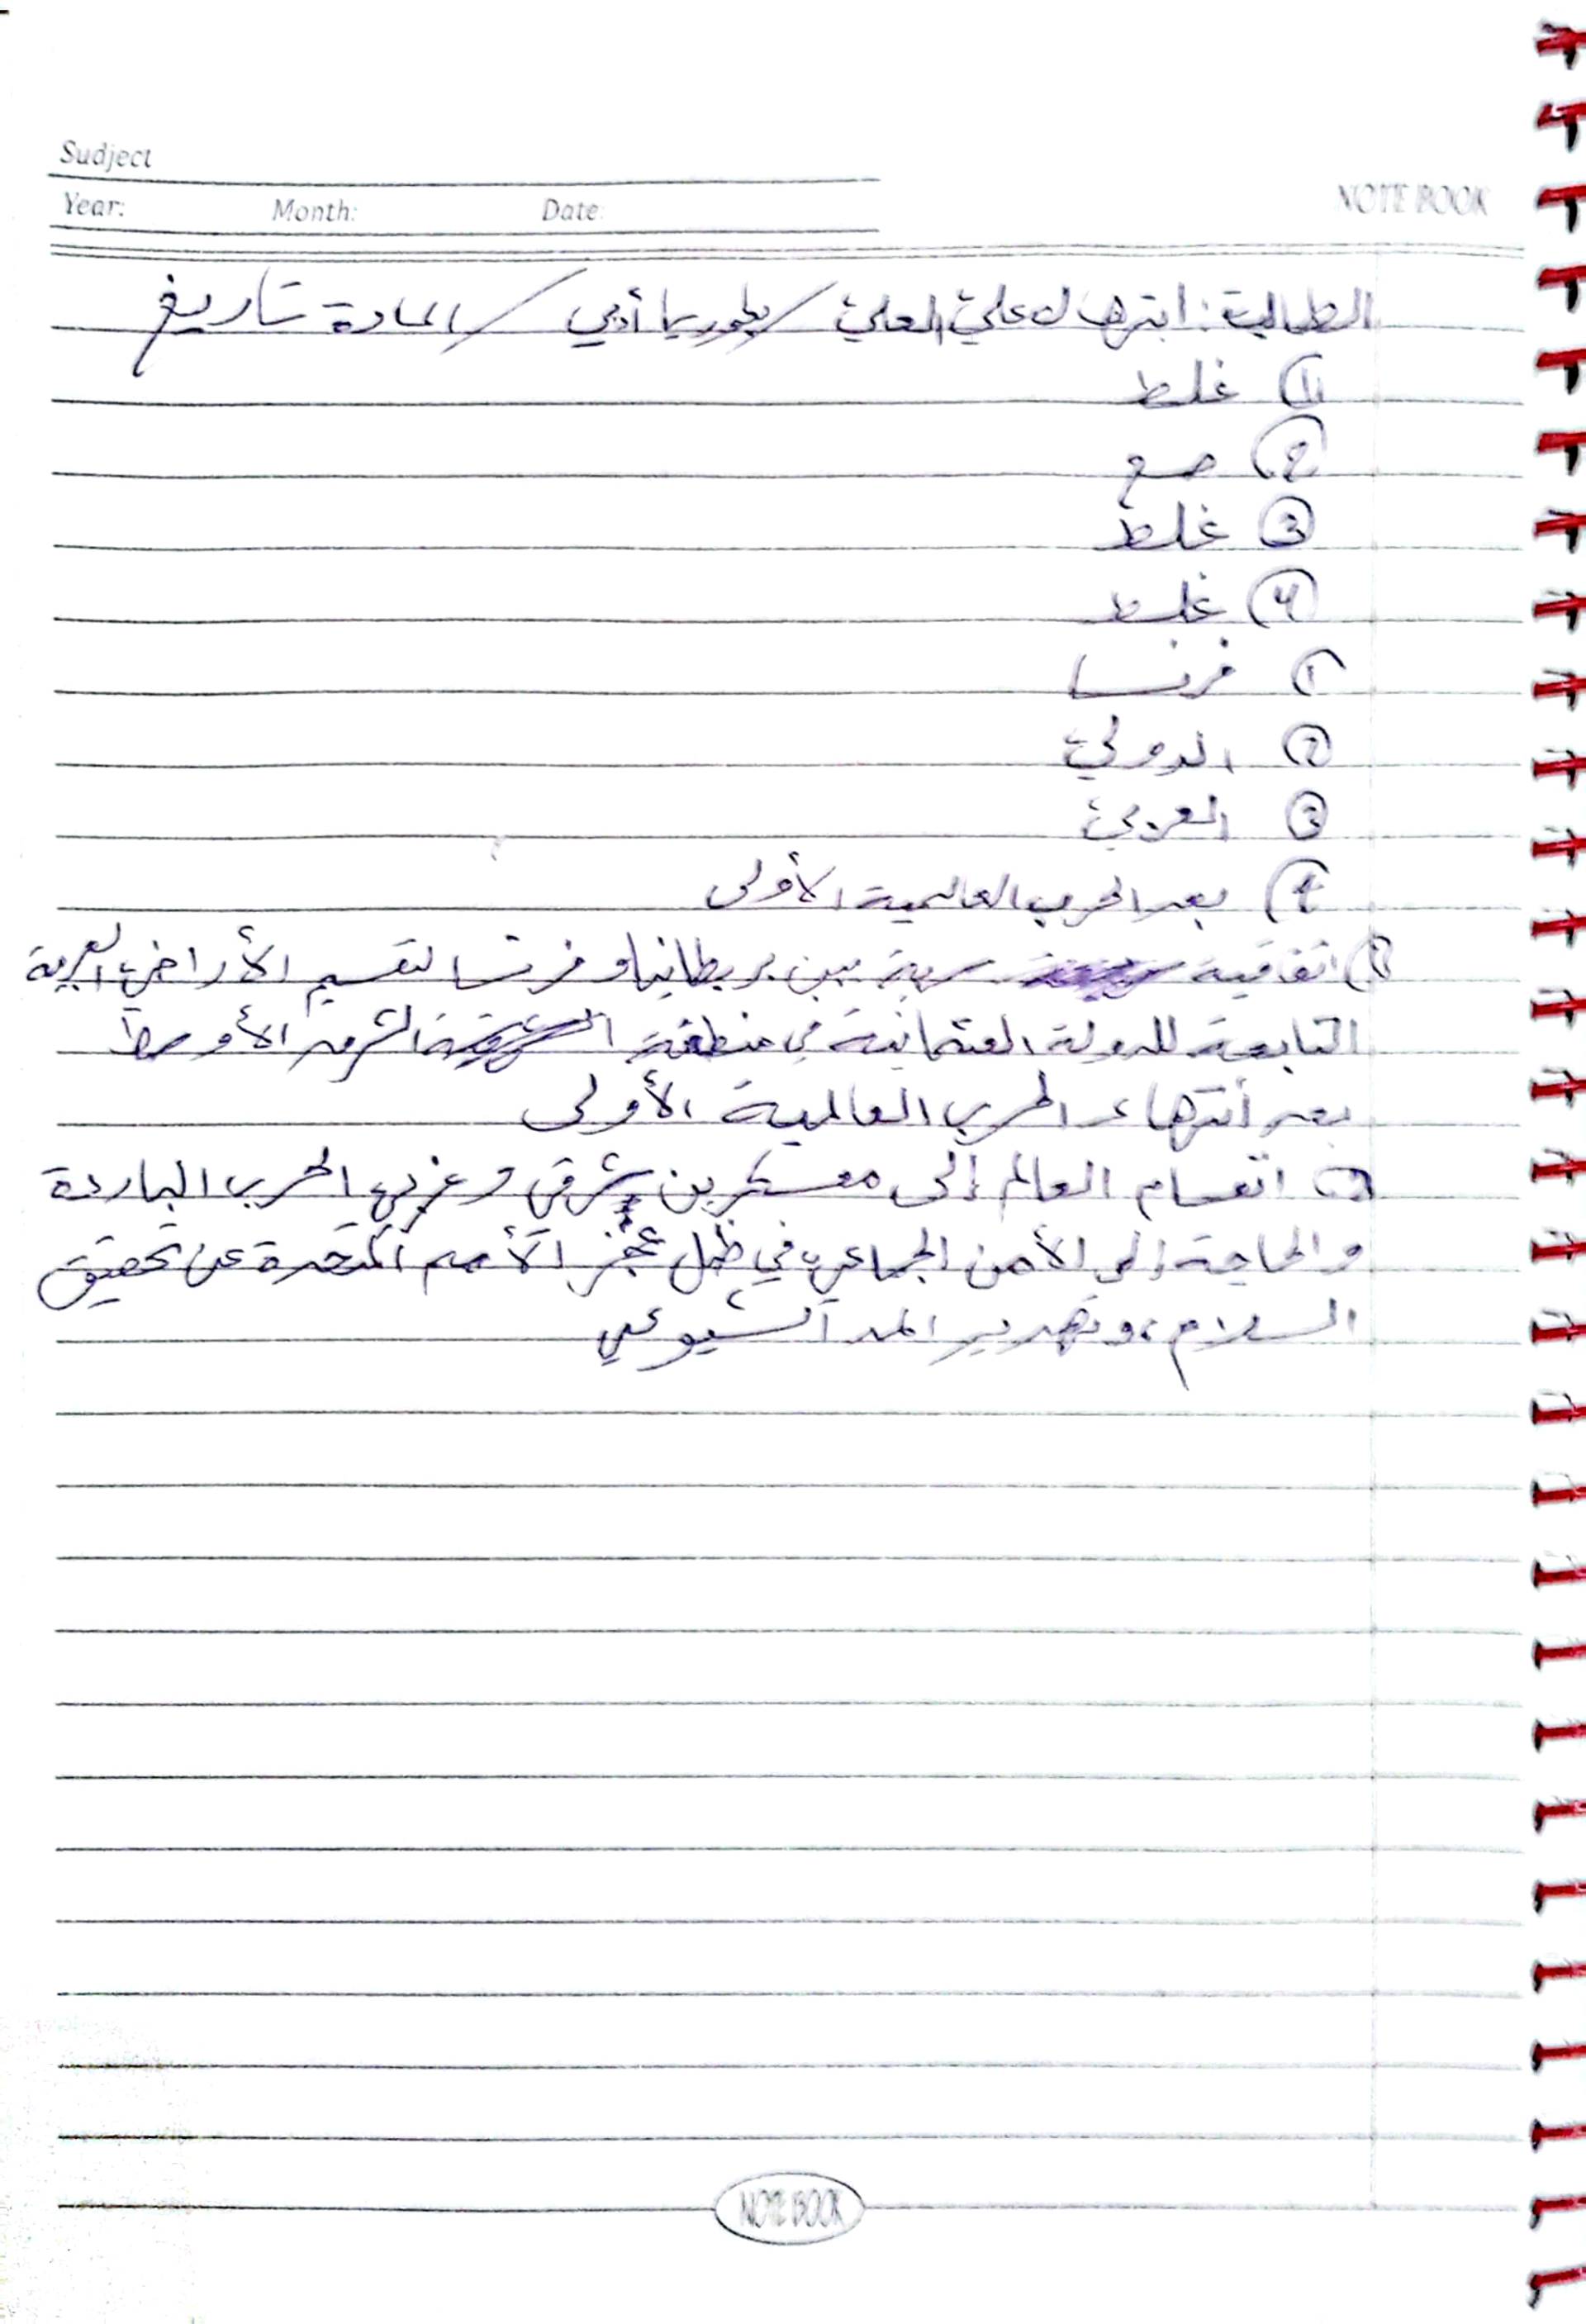 Sudject
Year: Month: Date:
NOTE BOOK
الطالبة: ابتهال علي العلي / بكلوريا أدبي / المادة تاريخ
① غلط
② صح
③ غلط
④ غلط
① فرنسا
② الدولي
③ العربي
④ بعد الحرب العالمية الأولى
اتفاقية سرية بين بريطانيا و فرنسا لتقسيم الأراضي العربية
التابعة للدولة العثمانية في منطقة الشرق الأوسط
بعد أنتهاء الحرب العالمية الأولى
انقسام العالم إلى معسكرين شرقي و غربي، الحرب الباردة
والحاجة إلى الأمن الجماعي في ظل عجز الأمم المتحدة عن تحقيق
السلام، وتهديد المد الشيوعي
NOTE BOOK